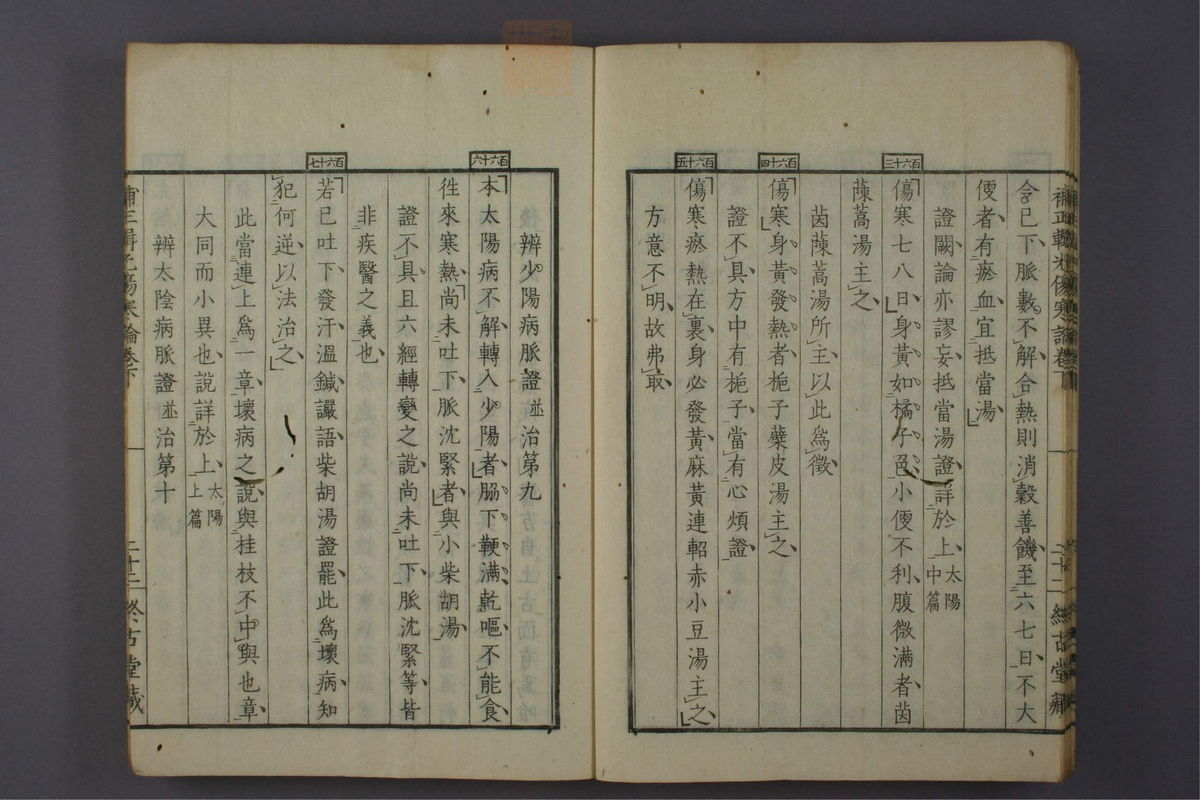 令已下脈數不解合熱則消穀善饑至六七日不大
便者有瘀血宜抵當湯
證闕論亦謬妄抵當湯證詳於上太陽中篇
百六十三
傷寒七八日身黃如橘子色小便不利腹微滿者茵
蔯蒿湯主之
茵蔯蒿湯所主以此爲徵
百六十四
傷寒身黃發熱者梔子蘗皮湯主之
證不具方中有梔子當有心煩證
百六十五
傷寒瘀熱在裏身必發黃麻黃連軺赤小豆湯主之
方意不明故弗取
辨少陽病脈證並治第九
百六十六
本太陽病不解轉入少陽者脇下鞕滿乾嘔不能食
徃來寒熱尚未吐下脈沈緊者與小柴胡湯
證不具且六經轉變之說尚未吐下脈沈緊等皆
非疾醫之義也
百六十七
若已吐下發汗溫鍼讝語柴胡湯證罷此爲壞病知
犯何逆以法治之
此當連上爲一章壞病之說與桂枝不中與也章
大同而小異也說詳於上太陽上篇
辨太陰病脈證並治第十
傷寒論卷下
二十二
終古堂藏